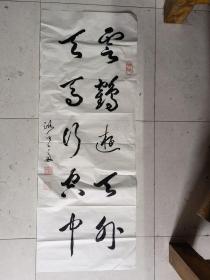 雲鶴遊天外
天馬行空中